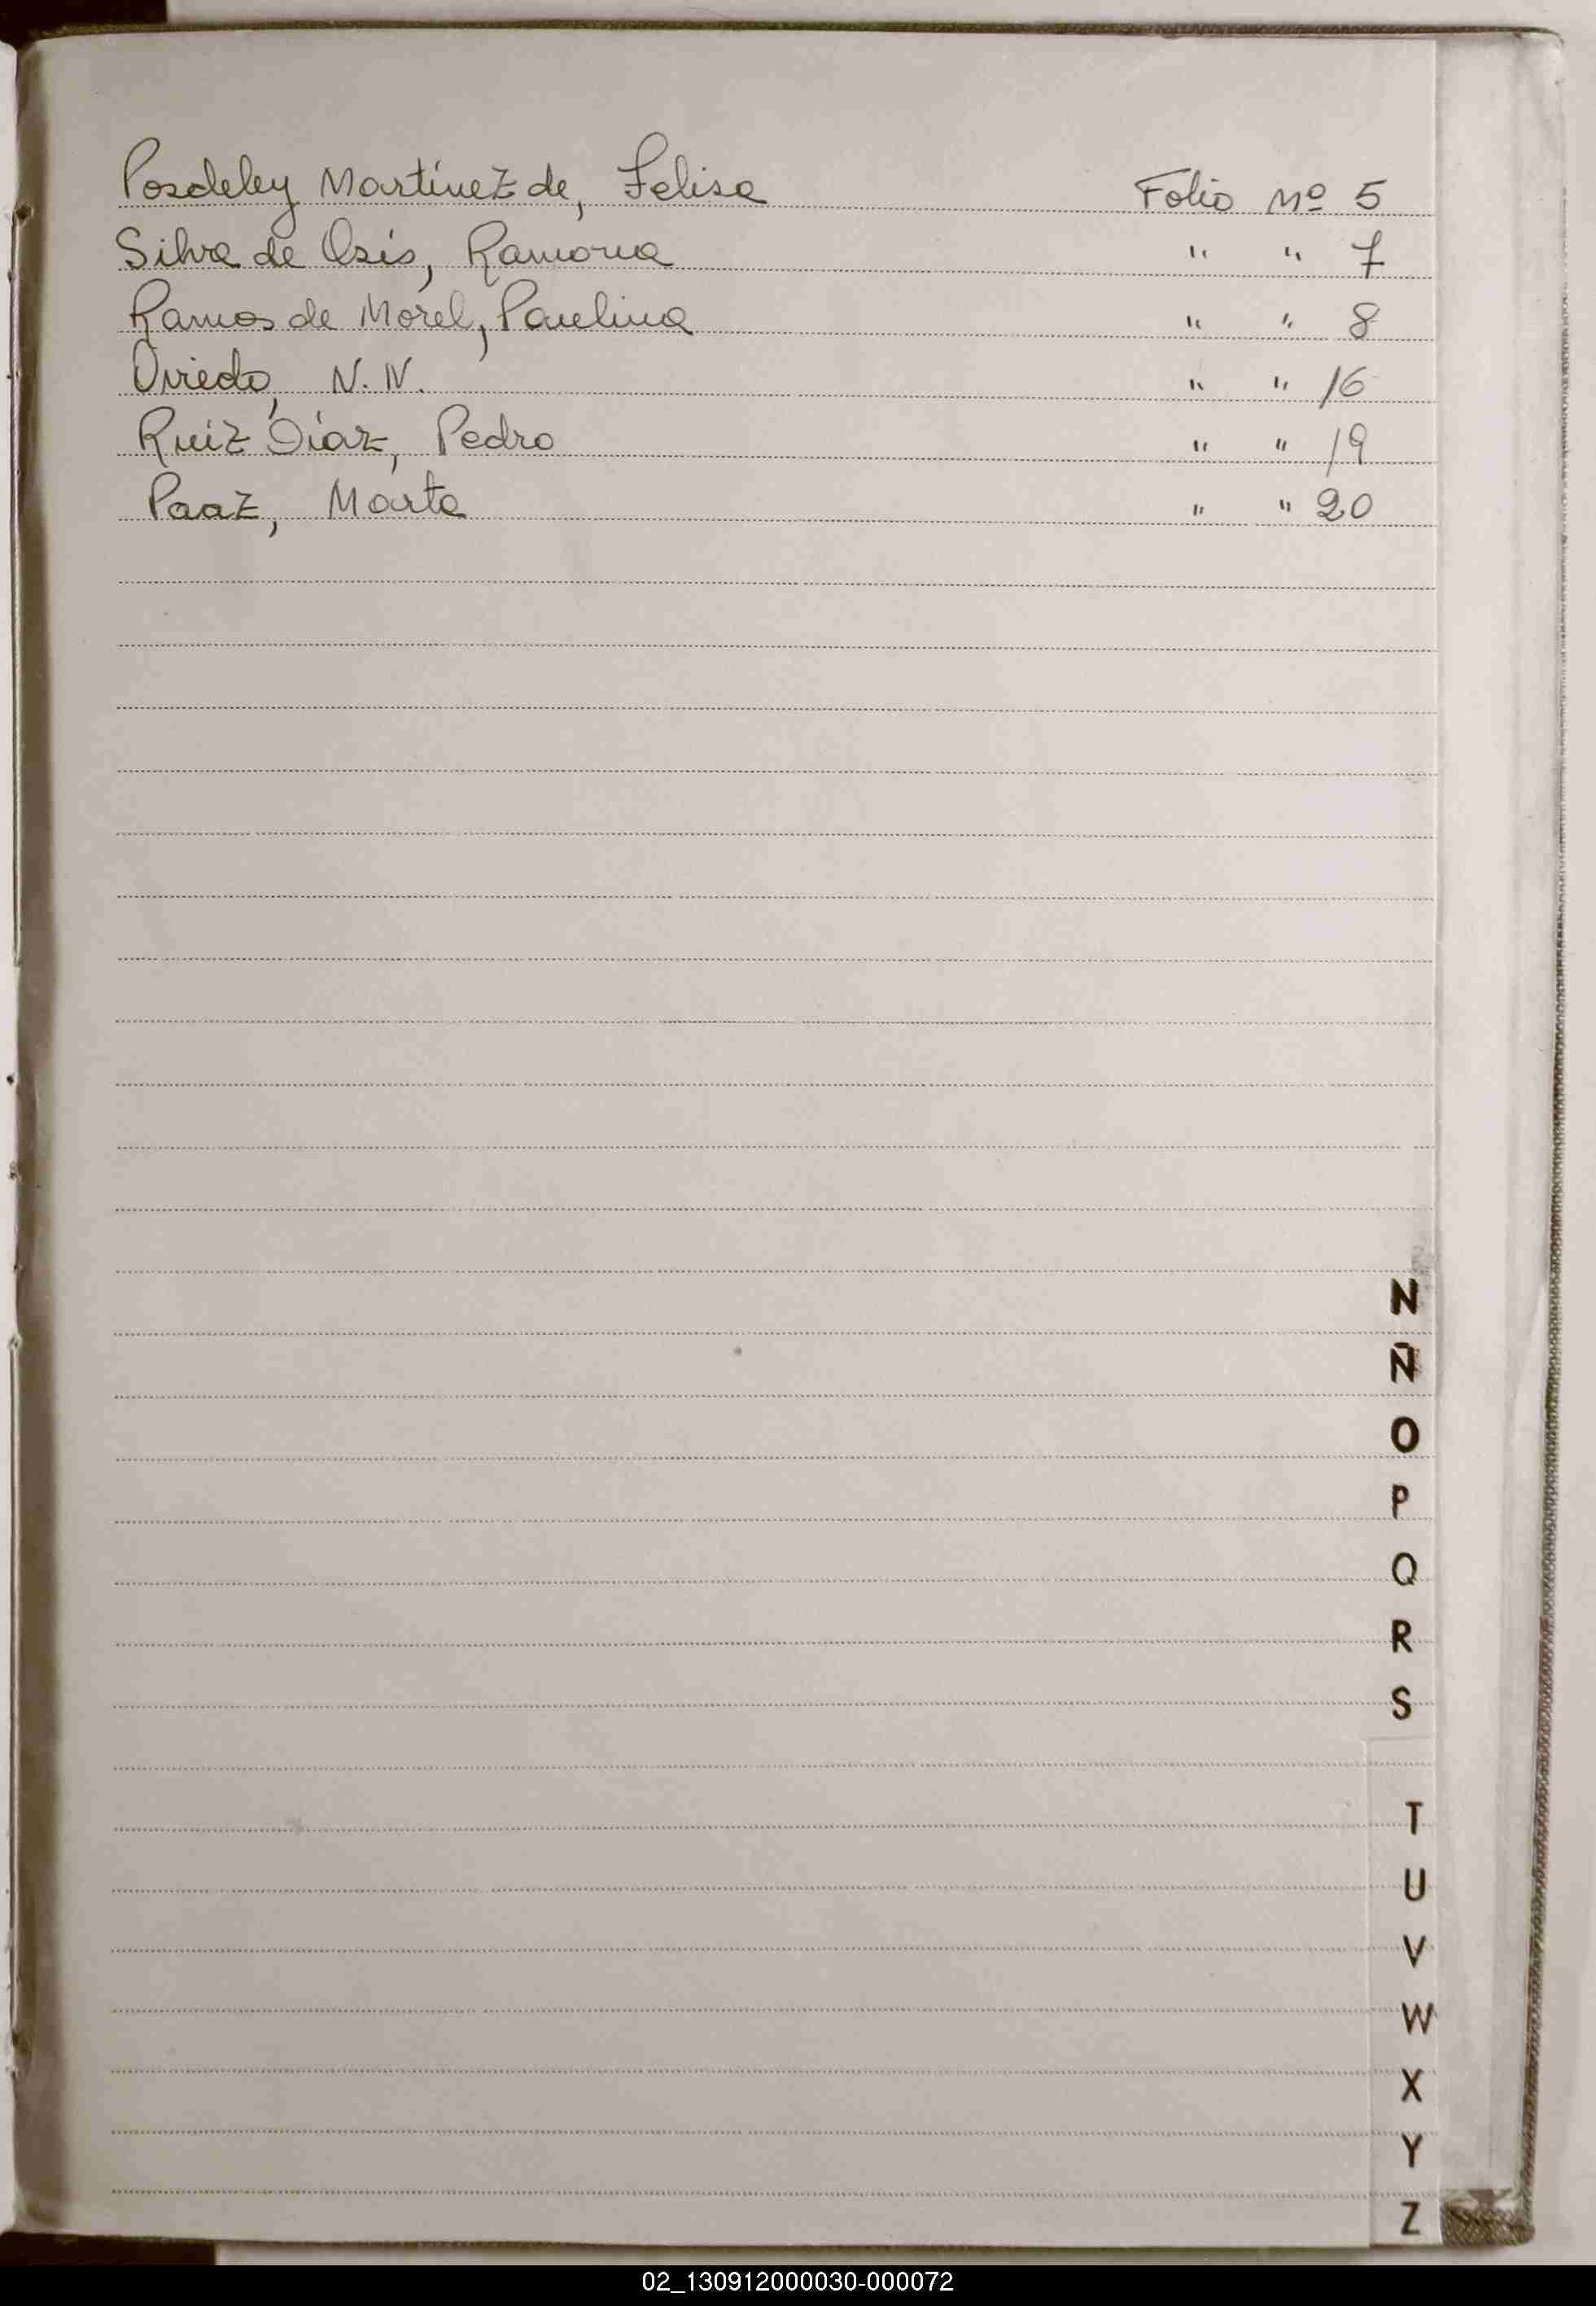 Posdeley Martínez de, Felisa Folio Nº 5
Silva de Osis, Ramona " " 7
Ramos de Morel, Paulina " " 8
Oviedo, N.N. " " 16
Ruiz Díaz, Pedro " " 19
Paaz, Marta " " 20
N
Ñ
O
P
Q
R
S
T
U
V
W
X
Y
Z
02_130912000030-000072